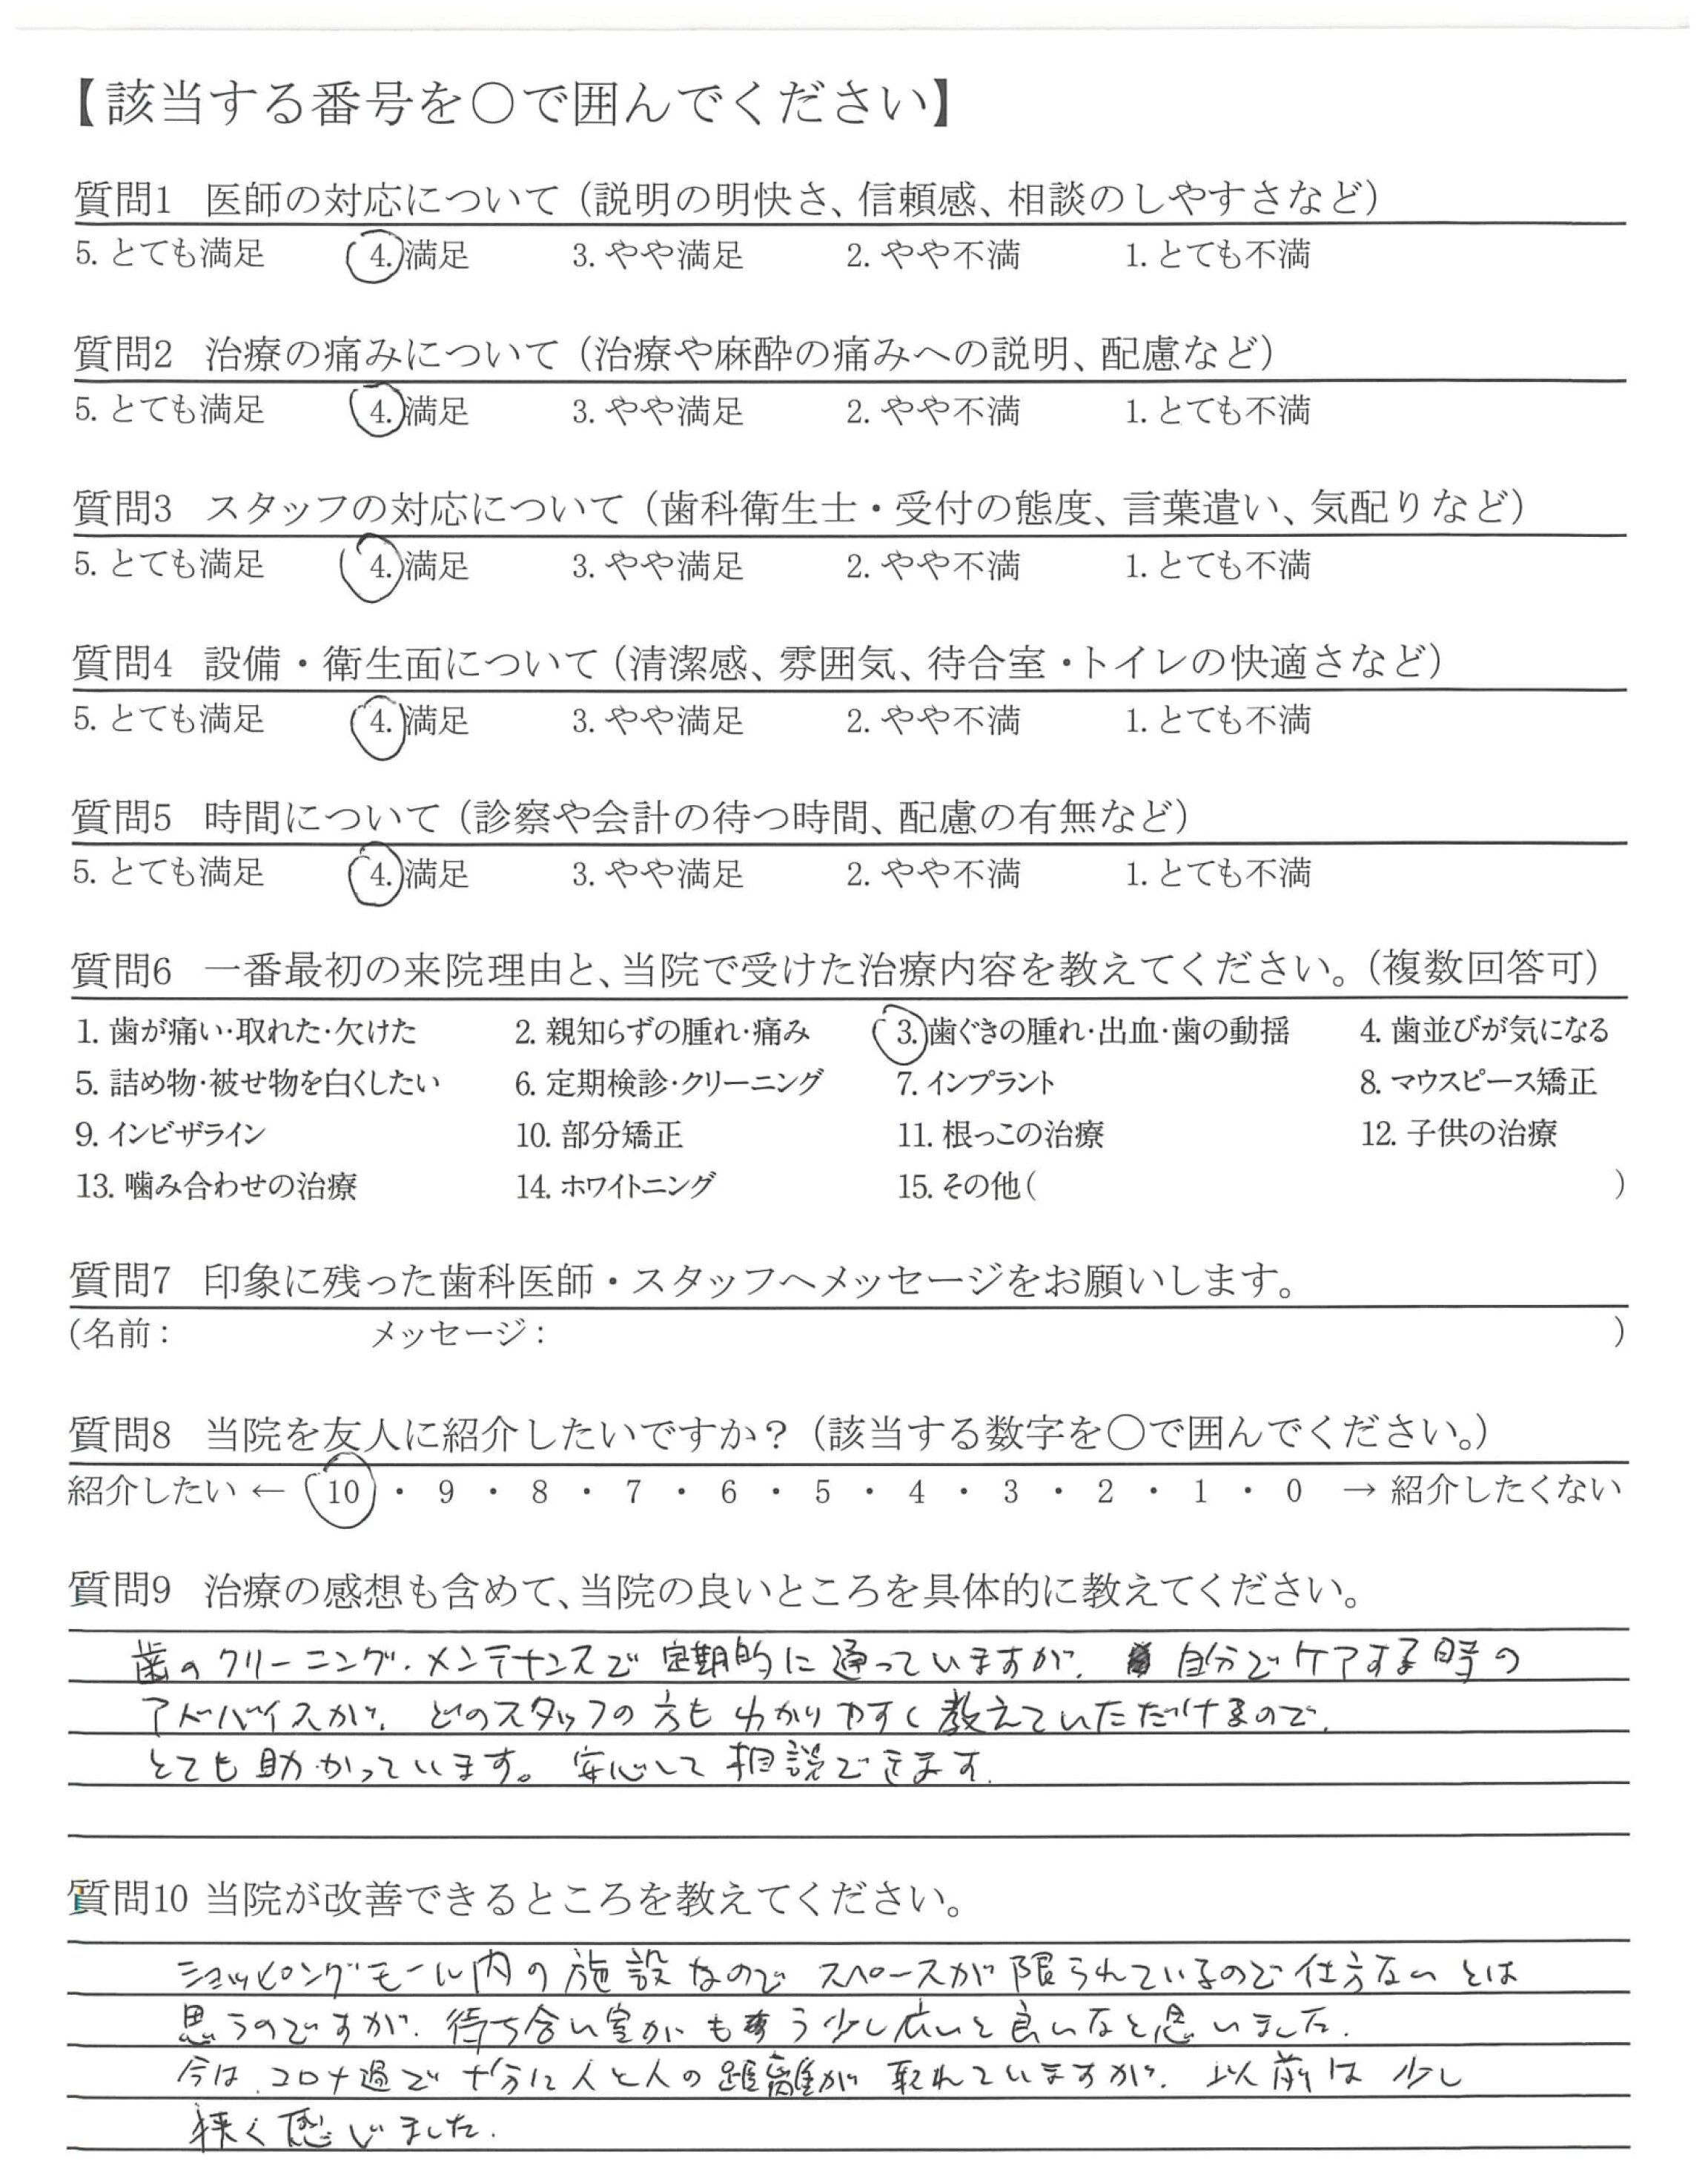 【該当する番号を〇で囲んでください】
質問1 医師の対応について（説明の明快さ、信頼感、相談のしやすさなど）
5. とても満足 4. 満足 3. やや満足 2. やや不満 1. とても不満
質問2 治療の痛みについて（治療や麻酔の痛みへの説明、配慮など）
5. とても満足 4. 満足 3. やや満足 2. やや不満 1. とても不満
質問3 スタッフの対応について（歯科衛生士・受付の態度、言葉遣い、気配りなど）
5. とても満足 4. 満足 3. やや満足 2. やや不満 1. とても不満
質問4 設備・衛生面について（清潔感、雰囲気、待合室・トイレの快適さなど）
5. とても満足 4. 満足 3. やや満足 2. やや不満 1. とても不満
質問5 時間について（診察や会計の待つ時間、配慮の有無など）
5. とても満足 4. 満足 3. やや満足 2. やや不満 1. とても不満
質問6 一番最初の来院理由と、当院で受けた治療内容を教えてください。（複数回答可）
1. 歯が痛い・取れた・欠けた 2. 親知らずの腫れ・痛み 3. 歯ぐきの腫れ・出血・歯の動揺 4. 歯並びが気になる
5. 詰め物・被せ物を白くしたい 6. 定期検診・クリーニング 7. インプラント 8. マウスピース矯正
9. インビザライン 10. 部分矯正 11. 根っこの治療 12. 子供の治療
13. 噛み合わせの治療 14. ホワイトニング 15. その他（ ）
質問7 印象に残った歯科医師・スタッフへメッセージをお願いします。
（名前： メッセージ： ）
質問8 当院を友人に紹介したいですか？（該当する数字を〇で囲んでください。）
紹介したい ← 10 ・ 9 ・ 8 ・ 7 ・ 6 ・ 5 ・ 4 ・ 3 ・ 2 ・ 1 ・ 0 → 紹介したくない
質問9 治療の感想も含めて、当院の良いところを具体的に教えてください。
歯のクリーニング・メンテナンスで定期的に通っていますが、自分でケアする時の
アドバイスが、どのスタッフの方もわかりやすく教えていただけるので、
とても助かっています。安心して相談できます.
質問10 当院が改善できるところを教えてください。
ショッピングモール内の施設なのでスペースが限られているので仕方ないとは
思うのですが、待ち合い室がもう少し広いと良いなと思いました.
今は、コロナ過で十分に人と人の距離が取れていますが、以前は少し
狭く感じました.